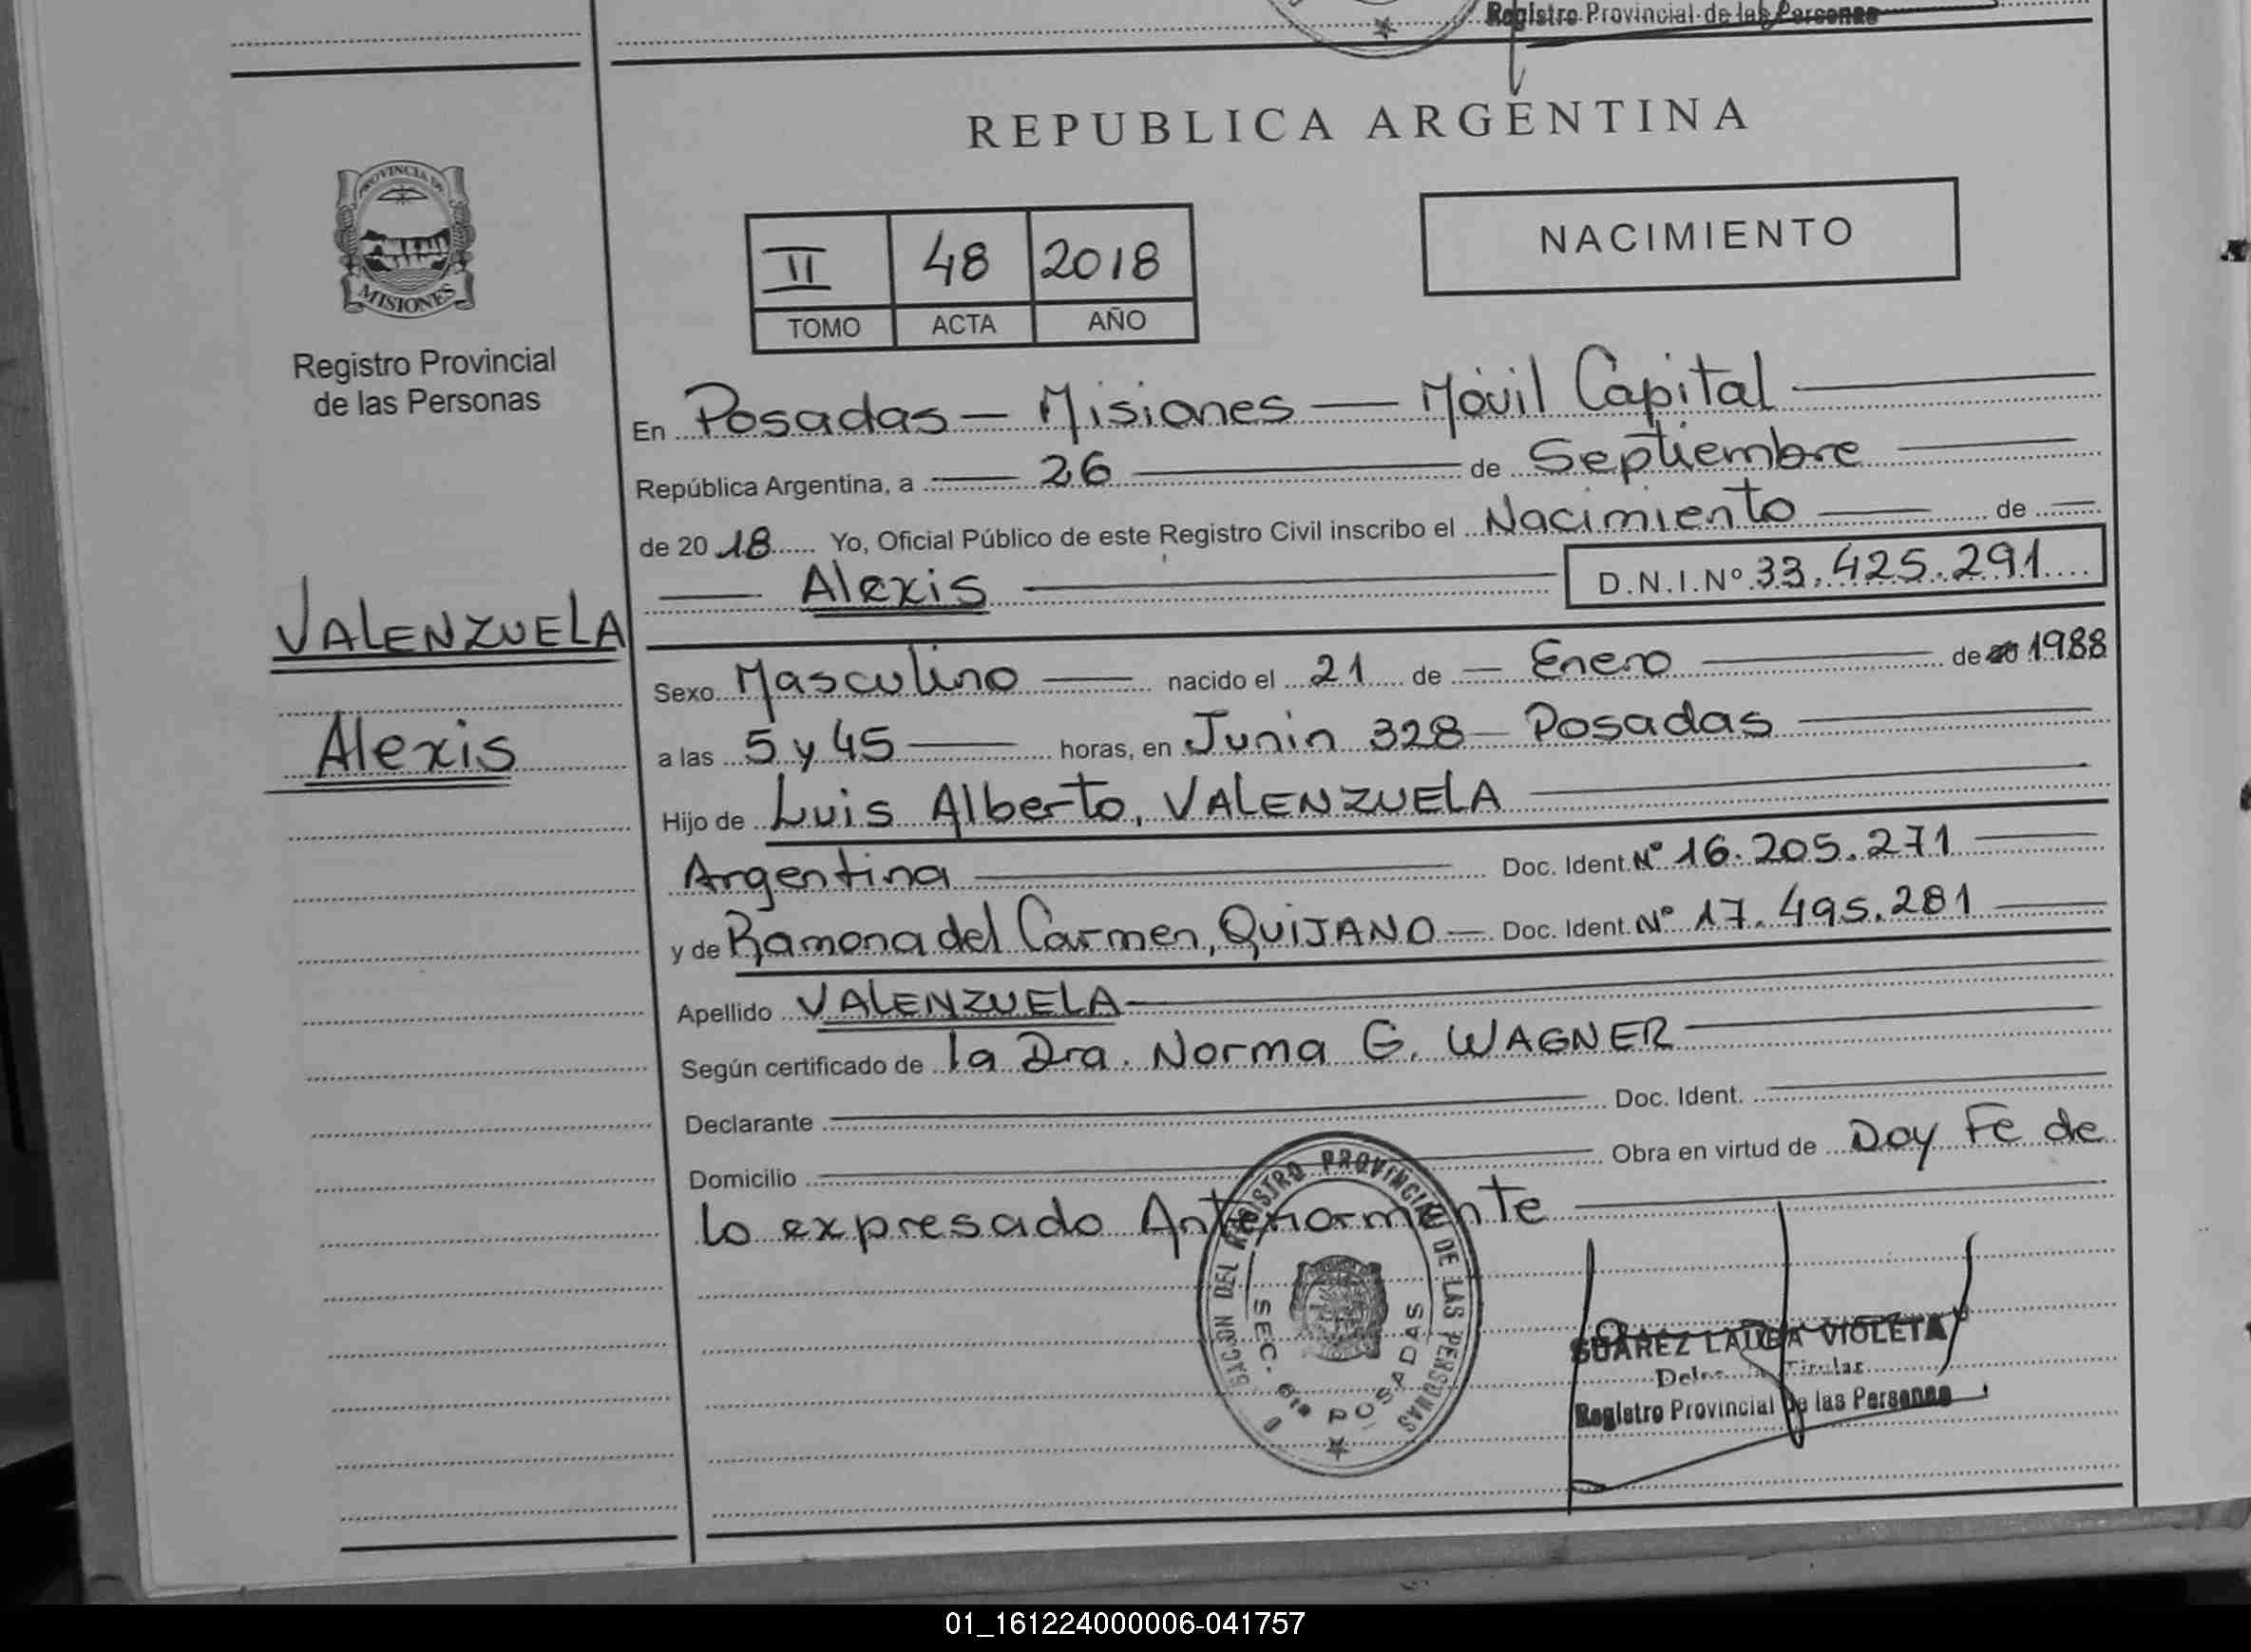 Registro Provincial de las Personas
REPUBLICA ARGENTINA
PROVINCIA DE
MISIONES
Registro Provincial
de las Personas
II 48 2018
TOMO ACTA AÑO
NACIMIENTO
En Posadas — Misiones — Móvil Capital
República Argentina, a 26 de Septiembre
de 2018 Yo, Oficial Público de este Registro Civil inscribo el Nacimiento de
Alexis D.N.I.Nº 33.425.291
VALENZUELA
Alexis
Sexo Masculino nacido el 21 de Enero de 1988
a las 5 y 45 horas, en Junin 328 - Posadas
Hijo de Luis Alberto, VALENZUELA
Argentina Doc. Ident. Nº 16.205.271
y de Ramona del Carmen, QUIJANO — Doc. Ident. Nº 17.495.281
Apellido VALENZUELA
Según certificado de la Dra. Norma G. WAGNER
Declarante Doc. Ident.
Domicilio Obra en virtud de Doy Fe de
lo expresado Anteriormente
DEL REGISTRO PROVINCIAL DE LAS PERSONAS
SEC. 6ta POSADAS
SUAREZ LAURA VIOLETA
Titular
Registro Provincial de las Personas
01_161224000006-041757